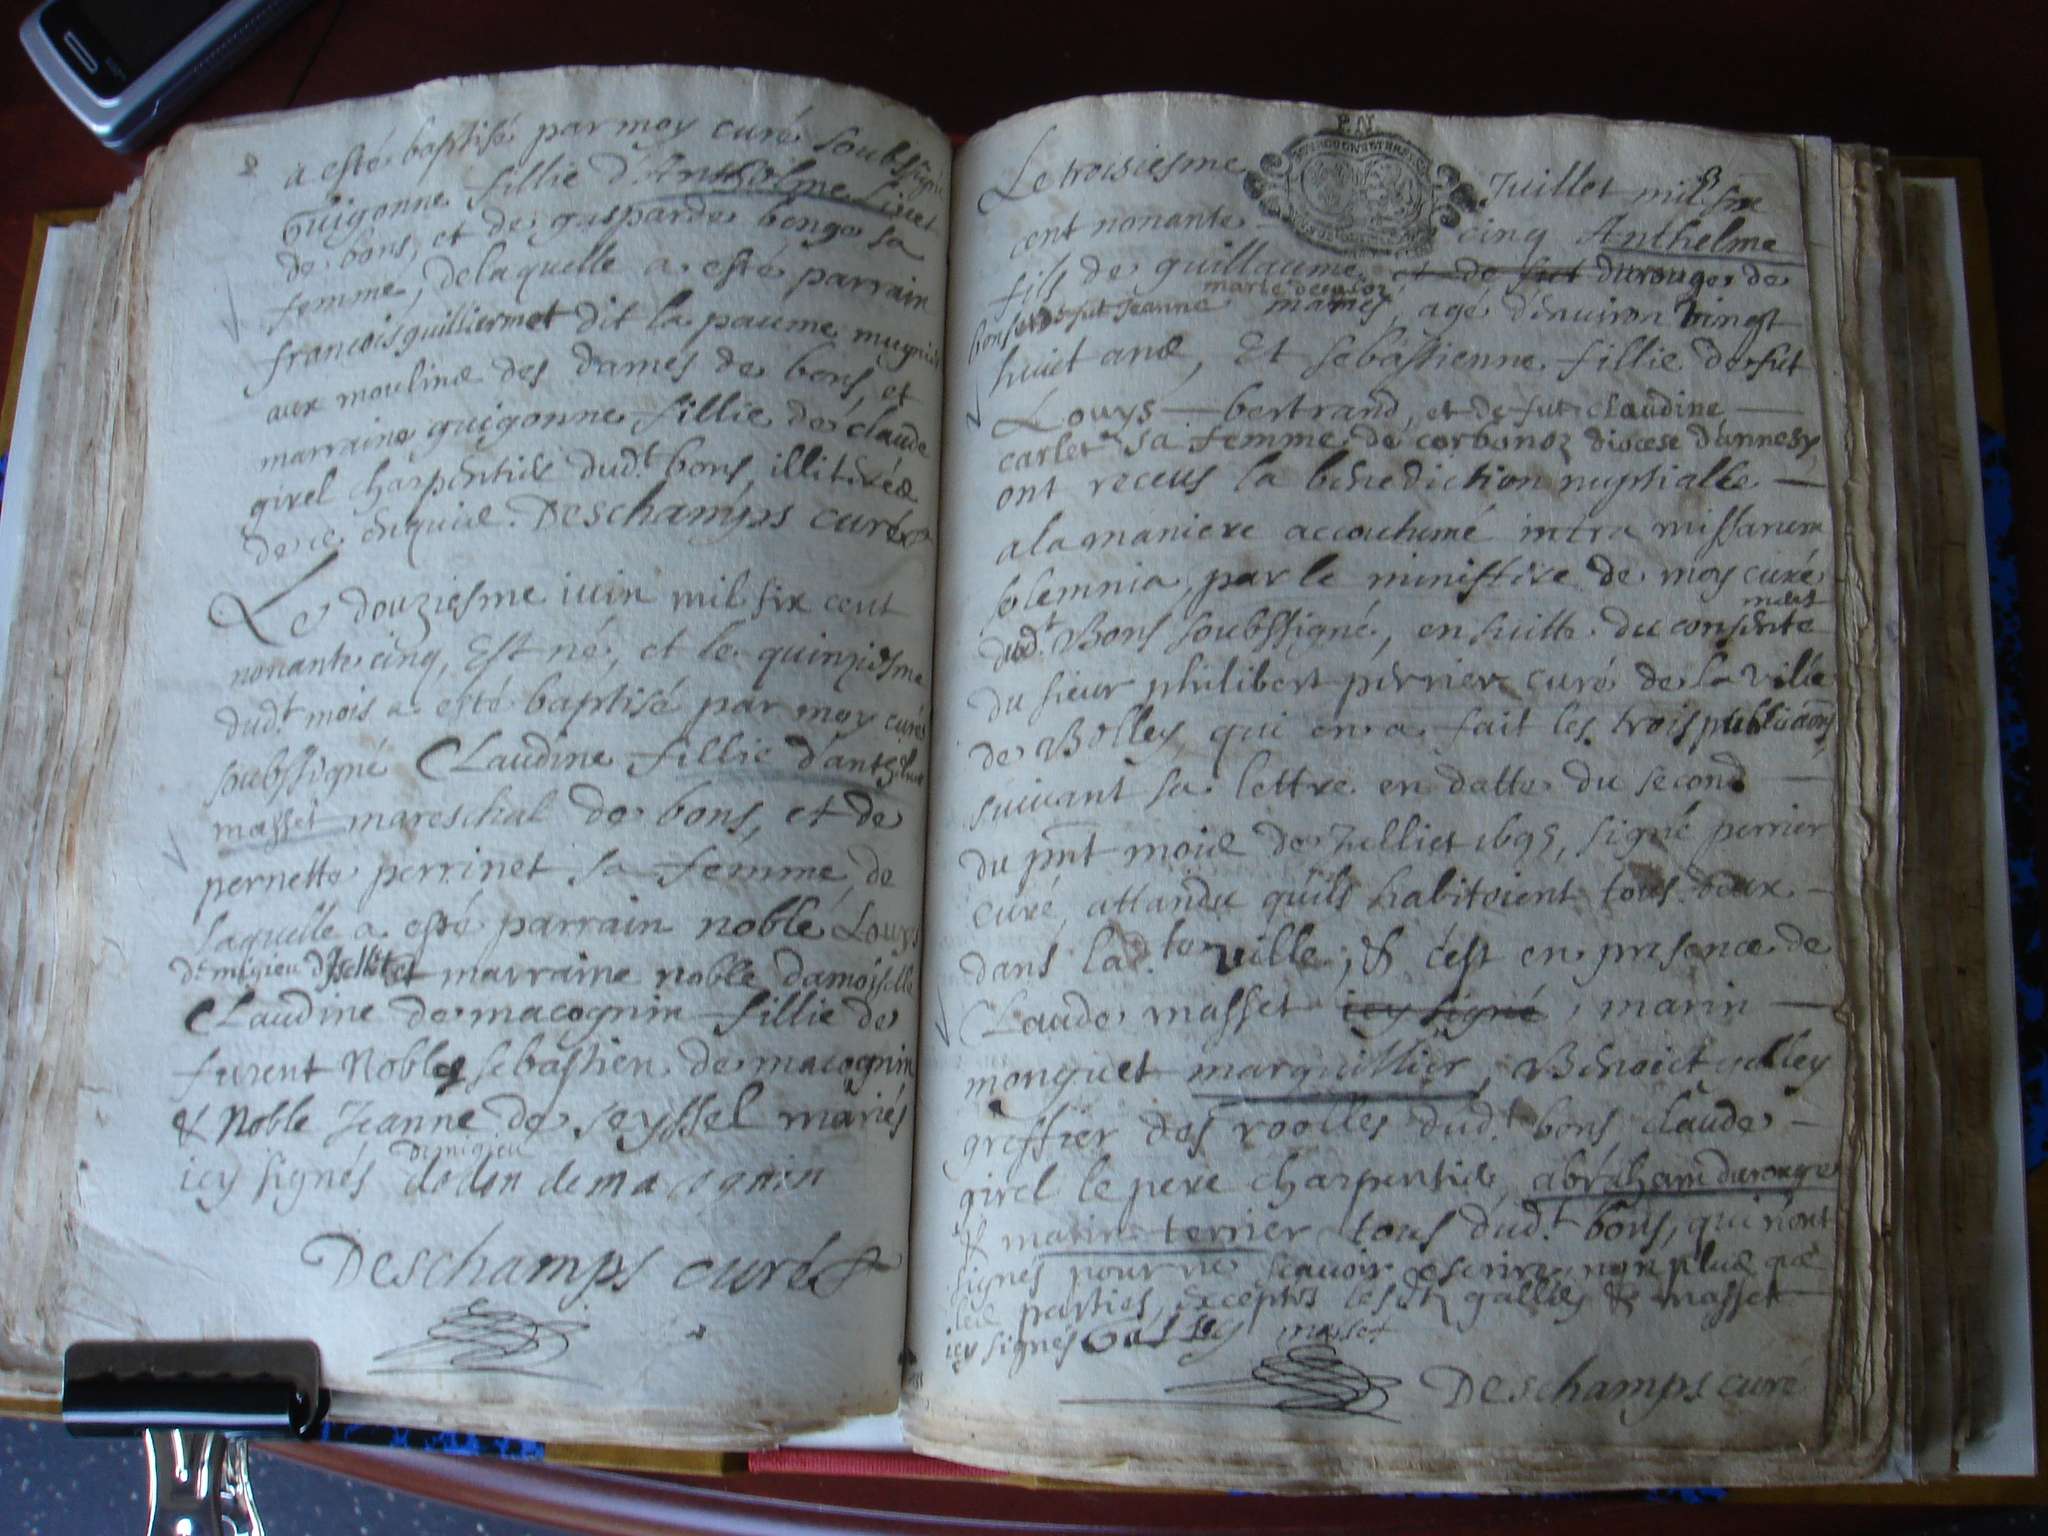 a esté baptisé par moy curé soubssigné
Guigonne fillie d'Anthelme Livet
de bons, et de gasparde benge sa
femme, de laquelle a esté parrain
francois guilliermet dit la paume mugnier
aux mouline des dames de bons, et
marraine guigonne fillie de claude
girel charpentier dud.t bons, illiterés
de ce enquis. Deschamps curé
Le douziesme iuin mil six cent
nonante cinq, Est né, et le quinziesme
dud.t mois a esté baptisé par moy curé
soubssigné Claudine fillie d'anthelme
masset mareschal de bons, et de
pernette perrinet sa femme, de
laquelle a esté parrain noble Louys
de migieu et marraine noble damoiselle
Claudine de macognin fillie de
furent Noble sebastien de macognin
& Noble Jeanne de seyssel mariés
icy signés demigieu dodon de macognin
Deschamps curé
P.N
Le troisiesme Juillet mil six
cent nonante cinq Anthelme
fils de guillaume et de fut durouge de
bons et de fut Jeanne mariés, agé d'enuiron vingt
huict ans, Et sebastienne fillie de fut
Louys bertrand, et de fut claudine
carlet sa femme de corbonoz diocese d'annessy,
ont receus la benediction nuptialle
a la maniere accoutumé intra missarum
solemnia, par le ministere de moy curé
dud.t Bons soubssigné, en suitte du consentement
du sieur philibert perrier curé de la ville
de Belley, qui en a fait les trois publicaōns,
suiuant sa lettre en datte du second
du pnt mois de Julliet 1695, signé perrier
curé, attandu quils habitoient tous deux
dans lad.te ville; & c'est en presence de
Claude masset icy signé, marin
monguet marguillier, Benoict galley
greffier des roolles dud.t bons, claude
girel le pere charpentier, abraham durouge
& marin terrier tous dud.t bons, qui n'ont
signés pour ne scauoir escrire, non plus que
les parties, exceptés lesd. galley & masset
icy signés Galley masset
Deschamps curé